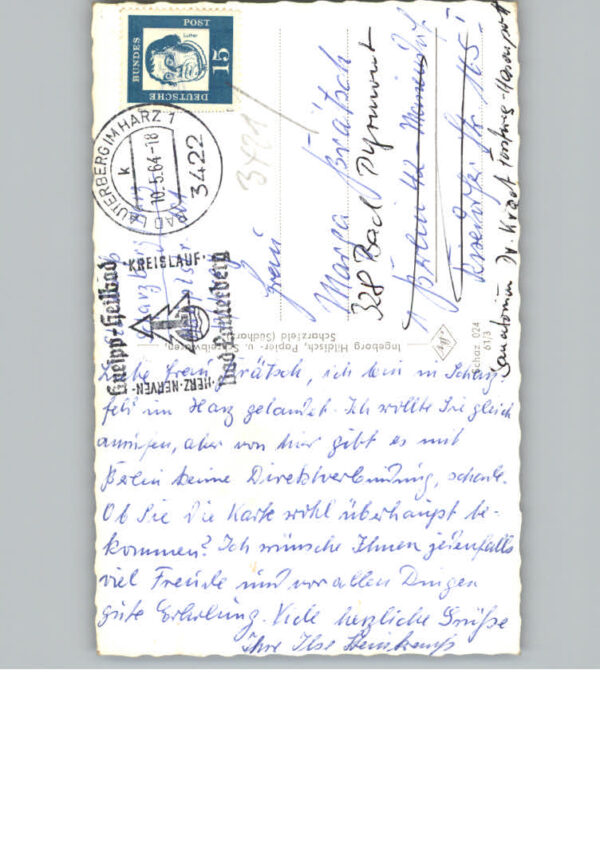 DEUTSCHE
BUNDES
POST
15
Luther
BAD LAUTERBERG IM HARZ 1
k
10.5.64-18
3422
Kneipp-Heilbad
·KREISLAUF·
·HERZ·NERVEN·
Bad Lauterberg
3421
Frau
Marga Grätsch
328 Bad Pyrmont
Berlin 42
145
Sanatorium Dr.
Ingeborg Hildisch, Papier- u. Schreibwaren,
Scharzfeld (Südharz)
Schaz 024
61/3
Liebe Frau Grätsch, ich bin in Scharz-
feld im Harz gelandet. Ich wollte Sie gleich
anrufen, aber von hier gibt es mit
Berlin keine Direktverbindung, schade.
Ob Sie die Karte wohl überhaupt be-
kommen? Ich wünsche Ihnen jedenfalls
viel Freude und vor allen Dingen
gute Erholung. Viele herzliche Grüße
Ihre Ilse